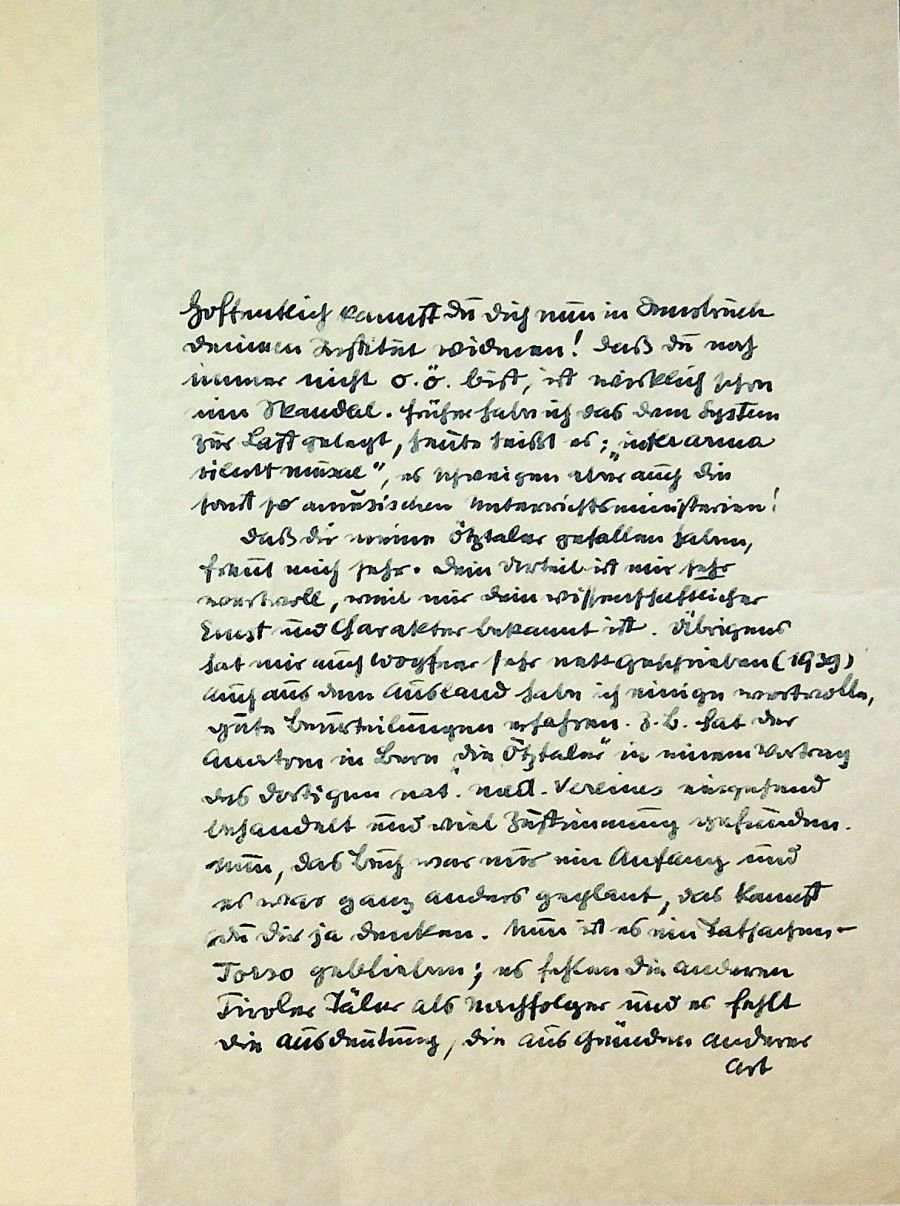 Hoffentlich kannst Du Dich nun in Innsbruck
Deinem Institut widmen! Daß Du noch
immer nicht o.ö. bist, ist wirklich schon
ein Skandal. Früher habe ich das dem System
zur Last gelegt, heute heißt es: „inter arma
silent musae", es schweigen aber auch die
sonst so amusischen Unterrichtsministerien!
Daß Dir meine Ötztaler gefallen haben,
freut mich sehr. Dein Urteil ist mir sehr
wertvoll, weil mir Dein wissenschaftlicher
Ernst und Charakter bekannt ist. Übrigens
hat mir auch sehr nett geschrieben (1939)
Auch aus dem Ausland habe ich einige wertvolle,
gute Beurteilungen erfahren. Z.B. hat der
Anatom in Bern „die Ötztaler" in einem Vortrag
des dortigen nat. med. Vereines eingehend
behandelt und viel Zustimmung gefunden.
Nun, das Buch war nur ein Anfang und
es war ganz anders geplant, das kannst
Du Dir ja denken. Nun ist es ein Tatsachen-
Torso geblieben; es fehlen die anderen
Tiroler Täler als Nachfolger und es fehlt
die Ausdeutung, die aus Gründen anderer
Art